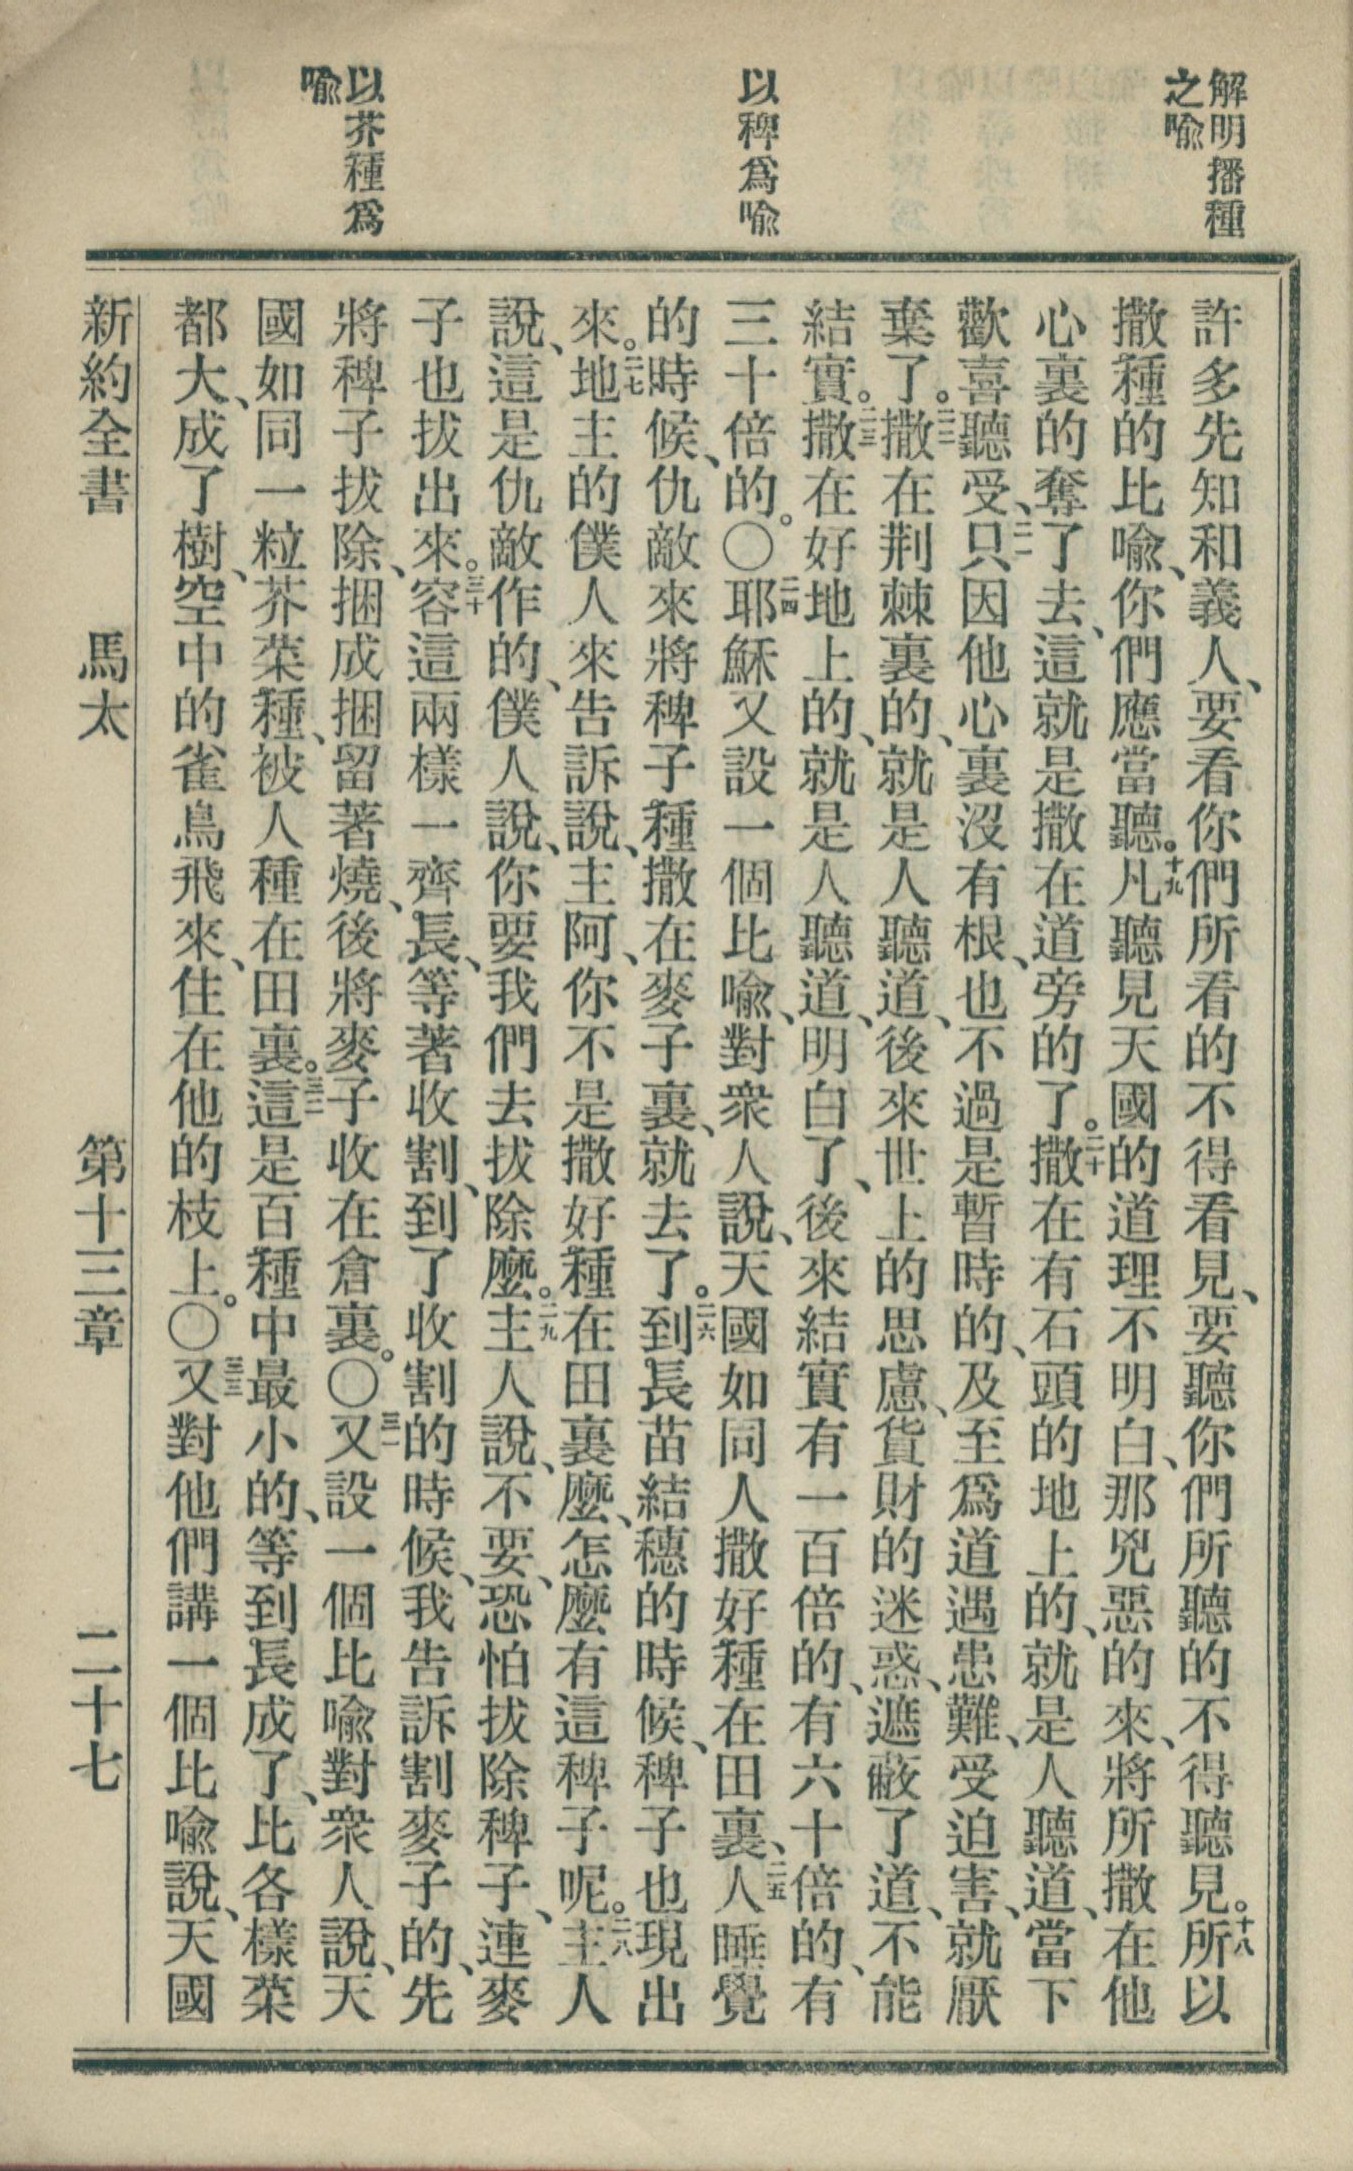 解明播種
之喩
以稗爲喩
以芥種爲
喩
許多先知和義人、要看你們所看的不得看見、要聽你們所聽的不得聽見。十八所以
撒種的比喩、你們應當聽。十九凡聽見天國的道理不明白、那兇惡的來、將所撒在他
心裏的奪了去、這就是撒在道旁的了。二十撒在有石頭的地上的、就是人聽道、當下
歡喜聽受、二一只因他心裏沒有根、也不過是暫時的、及至爲道遇患難、受迫害、就厭
棄了。二二撒在荆棘裏的、就是人聽道、後來世上的思慮、貨財的迷惑、遮蔽了道、不能
結實。二三撒在好地上的、就是人聽道、明白了、後來結實有一百倍的、有六十倍的、有
三十倍的。〇二四耶穌又設一個比喩、對衆人說、天國如同人撒好種在田裏、二五人睡覺
的時候、仇敵來將稗子種撒在麥子裏、就去了。二六到長苗結穗的時候、稗子也現出
來。二七地主的僕人來告訴說、主阿、你不是撒好種在田裏麽、怎麽有這稗子呢。二八主人
說、這是仇敵作的、僕人說、你要我們去拔除麽。二九主人說、不要、恐怕拔除稗子、連麥
子也拔出來。三十容這兩樣一齊長、等著收割、到了收割的時候、我告訴割麥子的、先
將稗子拔除、捆成捆留著燒、後將麥子收在倉裏。〇三一又設一個比喩對衆人說、天
國如同一粒芥菜種、被人種在田裏。三二這是百種中最小的、等到長成了、比各樣菜
都大、成了樹、空中的雀鳥飛來、住在他的枝上。〇三三又對他們講一個比喩說、天國
新約全書　馬太　第十三章　二十七